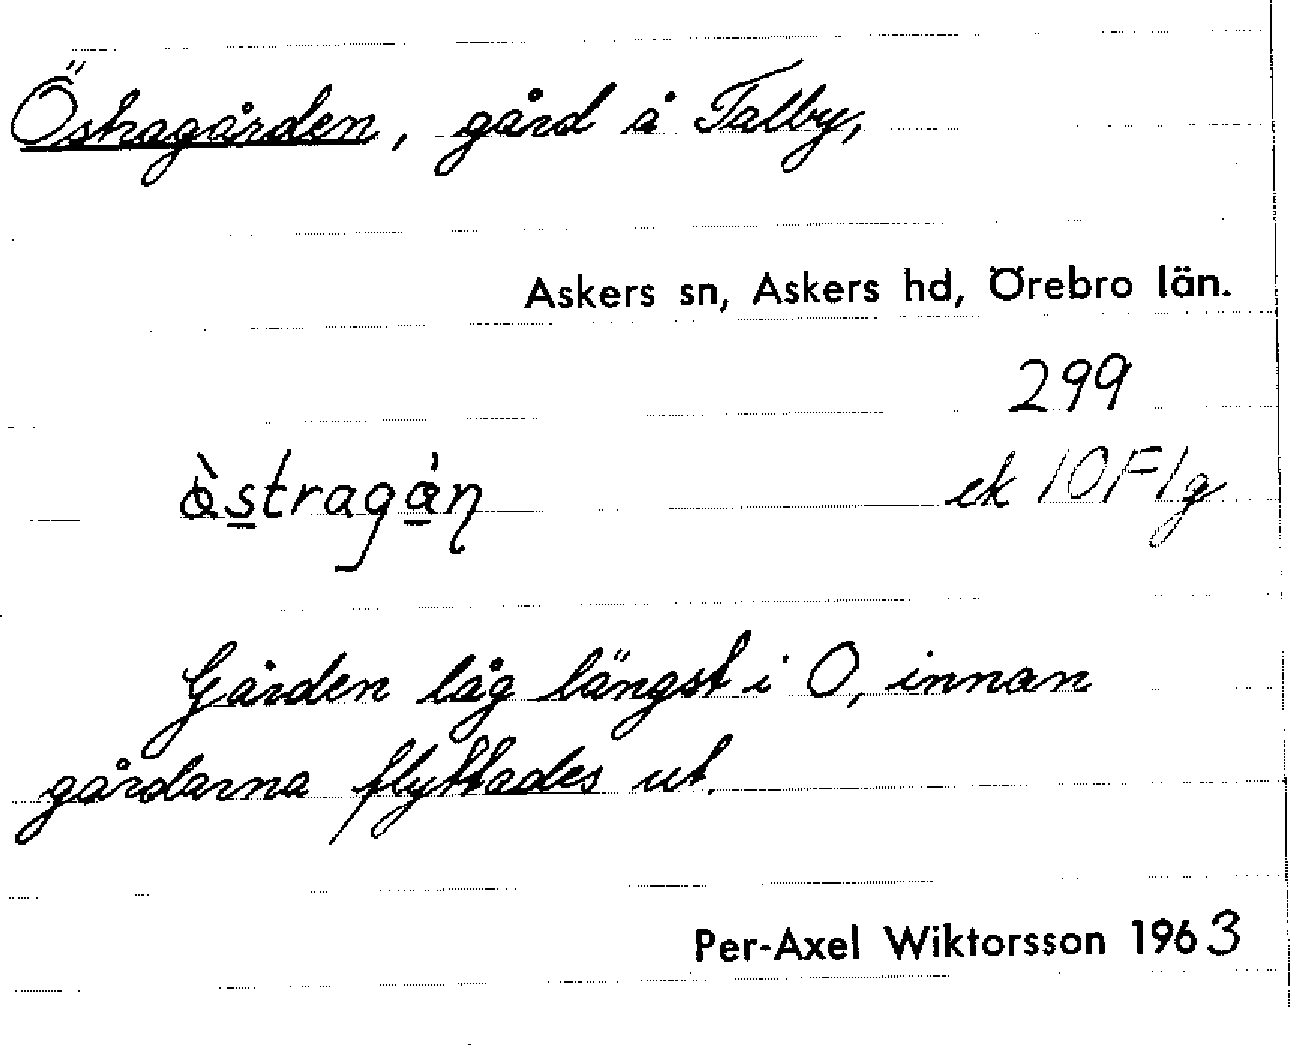 Östragården, gård å Talby,
Askers sn, Askers hd, Örebro län.
299
östragån̥ ek 10F1g
Gården låg längst i O, innan
gårdarna flyttades ut.
Per-Axel Wiktorsson 1963